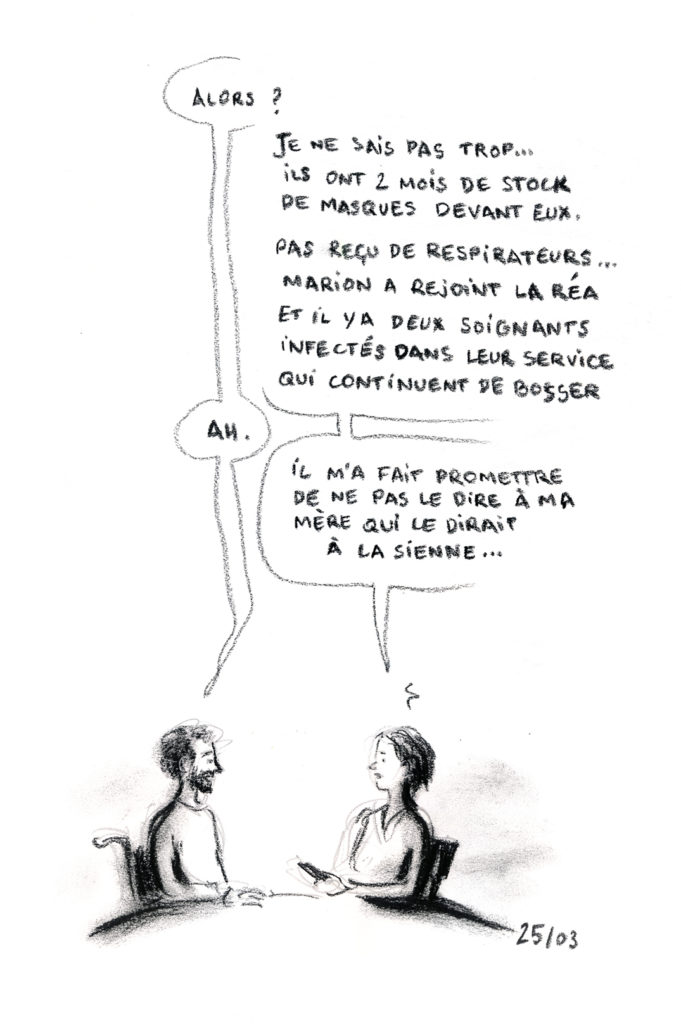 ALORS ?
JE NE SAIS PAS TROP...
ILS ONT 2 MOIS DE STOCK
DE MASQUES DEVANT EUX.
PAS REÇU DE RESPIRATEURS...
MARION A REJOINT LA RÉA
ET IL Y A DEUX SOIGNANTS
INFECTÉS DANS LEUR SERVICE
QUI CONTINUENT DE BOSSER
AH.
IL M'A FAIT PROMETTRE
DE NE PAS LE DIRE À MA
MÈRE QUI LE DIRAIT
À LA SIENNE...
25/03